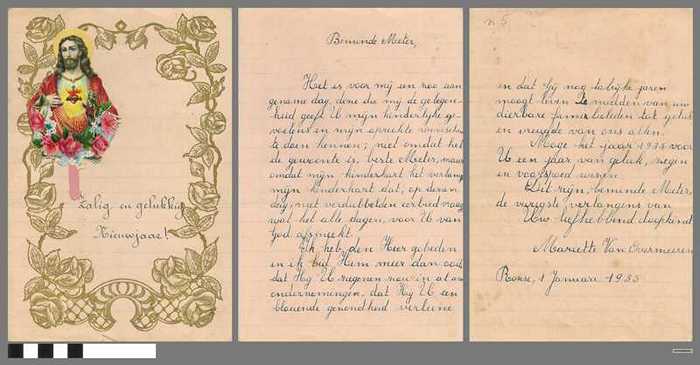 Zalig en gelukkig
Nieuwjaar!
Beminde Meter,
Het is voor mij een zoo aan
gename dag, deze die mij de gelegen-
heid geeft U mijn kinderlijke ge-
voelens en mijn oprechte wenschen
te doen kennen; niet omdat het
de gewoonte is, beste Meter, maar
omdat mijn kinderhart het verlangt
mijn kinderhart dat, op dezen
dag, met verdubbelden eerbied
wat het alle dagen, voor U van
God afsmeekt.
Ik heb den Heer gebeden
en ik bid Hem meer dan ooit
dat Hij U zegenen zou in al uw
ondernemingen, dat Hij U een
bloeiende gezondheid verleene
n 5
en dat Gij nog talrijke jaren
moogt leven te midden van uw
dierbare familieleden tot geluk
en vreugde van ons allen.
Moge het jaar 1935 voor
U een jaar van geluk, zegen
en voorspoed wezen.
Dit zijn, beminde Meter,
de vurigste verlangens van
Uw liefhebbend doopkind
Mariette Van Overmeeren
Ronse, 1 Januari 1935